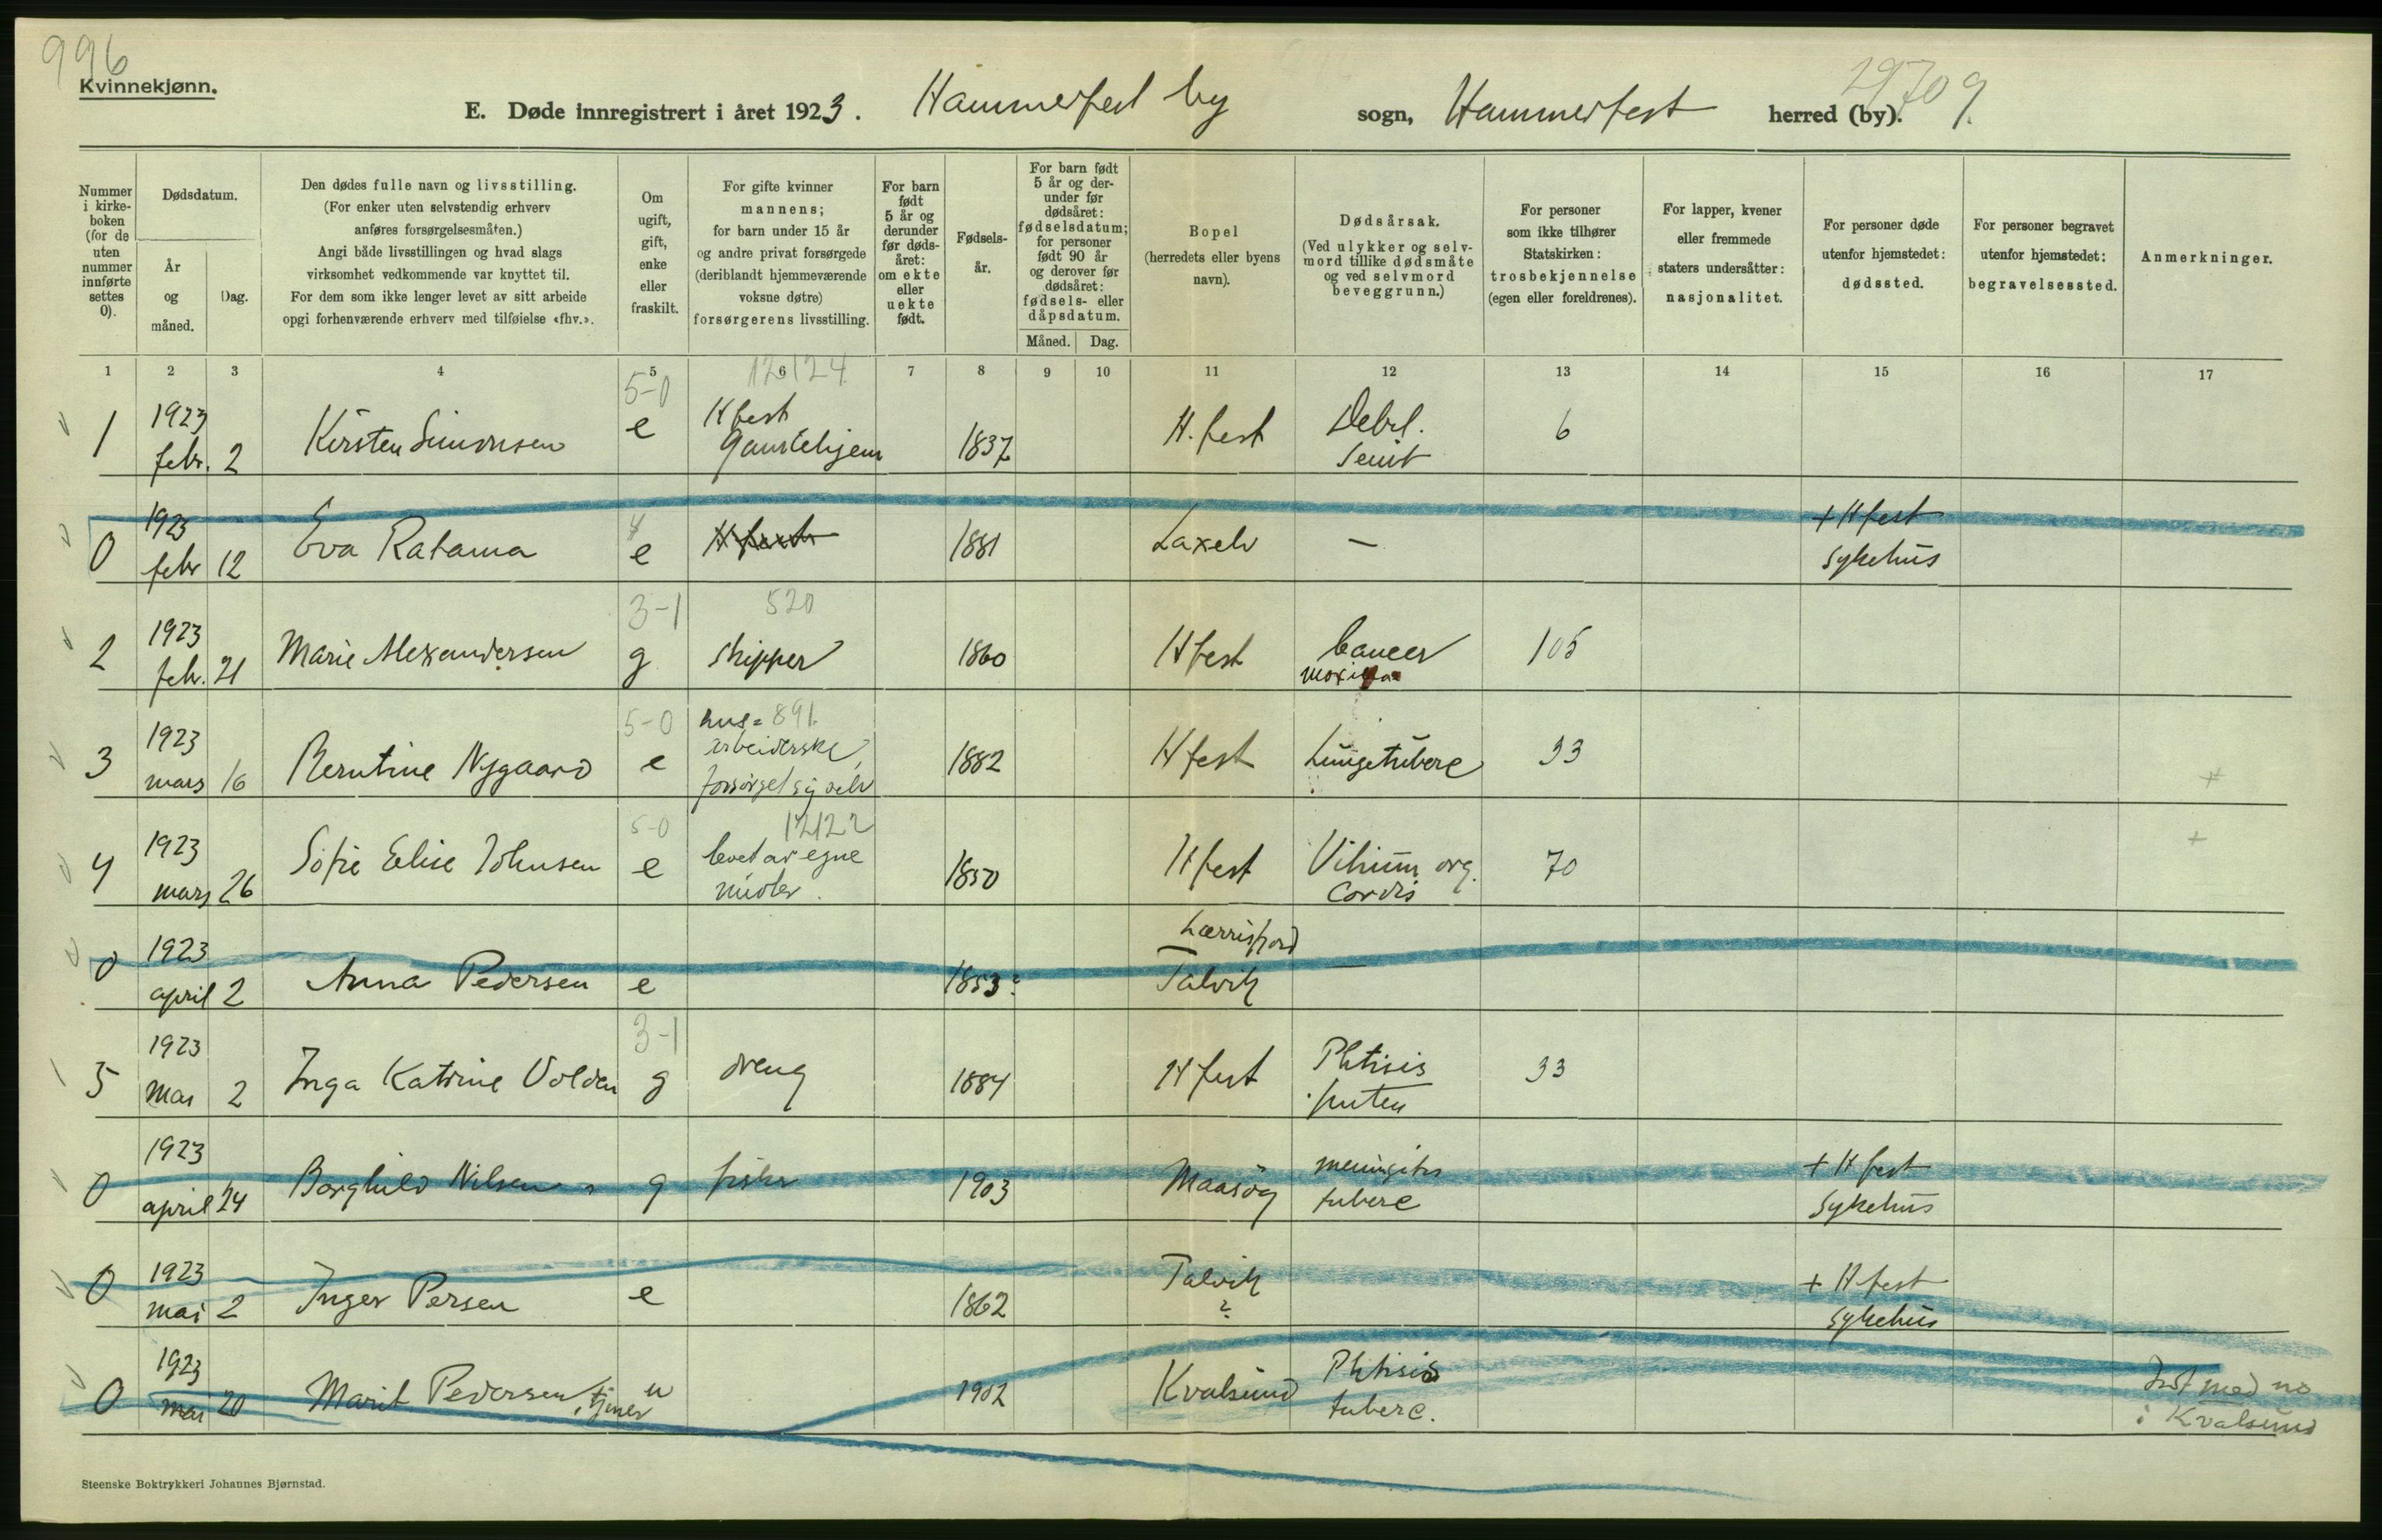 996
Kvinnekjønn.
E. Døde innregistrert i året 1923. Hammerfest by sogn, Hammerfest herred (by). 9.
29709
Nummer i kirke-boken (for de uten nummer innførte settes 0).
Dødsdatum.
År og måned.
Dag.
Den dødes fulle navn og livsstilling.
(For enker uten selvstendig erhverv
anføres forsørgelsesmåten.)
Angi både livsstillingen og hvad slags
virksomhet vedkommende var knyttet til.
For dem som ikke lenger levet av sitt arbeide
opgi forhenværende erhverv med tilføielse «fhv.».
Om ugift, gift, enke eller fraskilt.
For gifte kvinner
mannens;
for barn under 15 år
og andre privat forsørgede
(deriblandt hjemmeværende
voksne døtre)
forsørgerens livsstilling.
For barn født 5 år og derunder før døds-året: om ekte eller uekte født.
Fødsels-år.
For barn født
5 år og der-
under før
dødsåret:
fødselsdatum;
for personer
født 90 år
og derover før
dødsåret:
fødsels- eller
dåpsdatum.
Måned. Dag.
Bopel
(herredets eller byens
navn).
Dødsårsak.
(Ved ulykker og selv-
mord tillike dødsmåte
og ved selvmord
beveggrunn.)
For personer
som ikke tilhører
Statskirken:
trosbekjennelse
(egen eller foreldrenes).
For lapper, kvener
eller fremmede
staters undersåtter:
nasjonalitet.
For personer døde
utenfor hjemstedet:
dødssted.
For personer begravet
utenfor hjemstedet:
begravelsessted.
Anmerkninger.
1 2 3 4 5 6 7 8 9 10 11 12 13 14 15 16 17
5-0 12124
1 1923 febr. 2 Kirsten Simonsen e Hfest Gamlehjem 1837 H.fest Debil. Senit 6
0 1923 febr 12 Eva Ratama e Hfest 1881 Laxelv — + Hfest sykehus
3-1 520
2 1923 febr. 21 Marie Alexandersen g skipper 1860 Hfest Cancer 105
5-0 891.
3 1923 mars 16 Berntine Nygaard e hus= arbeiderske, forsörget sig selv 1882 Hfest Lungetuberc 33
5-0 12122
4 1923 mars 26 Sofie Elise Johnsen e levet av egne midler. 1850 Hfest Vitium org. Cordis 70 +
0 1923 april 2 Anna Pedersen e 1853? Talvik —
3-1
5 1923 Mai 2 Inga Katrine Volden g dreng 1884 Hfest Phtisis 33
0 1923 april 24 Borghild Nilsen g fisker 1903 Maasöy meningitis tuberc + Hfest Sykehus
0 1923 mai 2 Inger Persen e 1862 Talvik ? + Hfest sykehus
0 1923 mai 20 Marit Pedersen, tjener u 1902 Kvalsund Phtisis tuberc. Inf med no i Kvalsund
Steenske Boktrykkeri Johannes Bjørnstad.